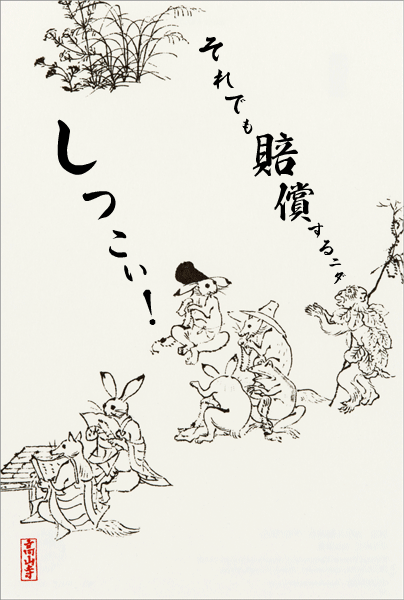 それでも賠償するニダ
しつこい！
高山寺